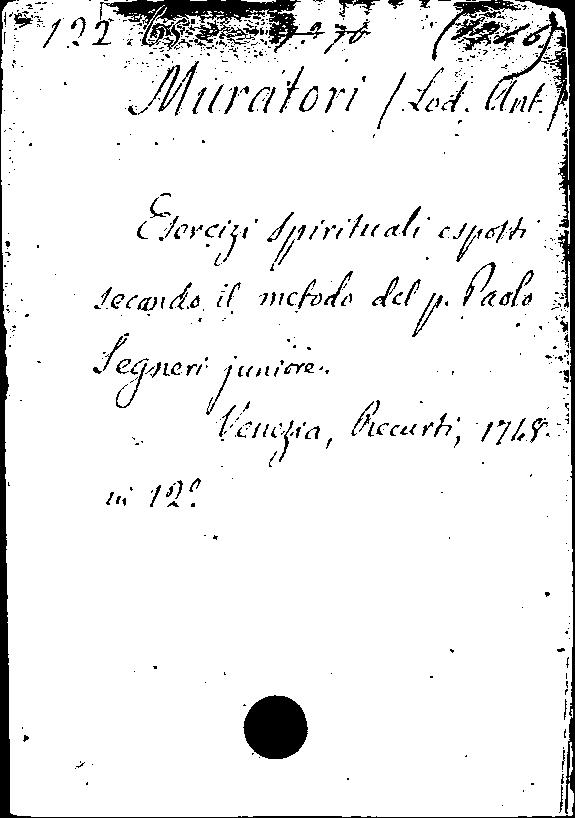 122
Muratori (Lod. Ant.)
Esercizi spirituali esposti
secondo il metodo del p. Paolo
Segneri juniore.
Venezia, Recurti, 1748.
in 12º